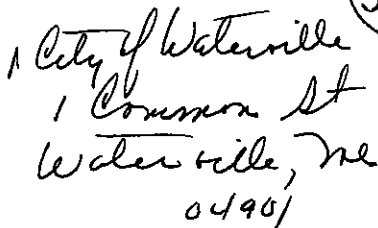 City of Waterville
1 Common St
Waterville, Me
04901